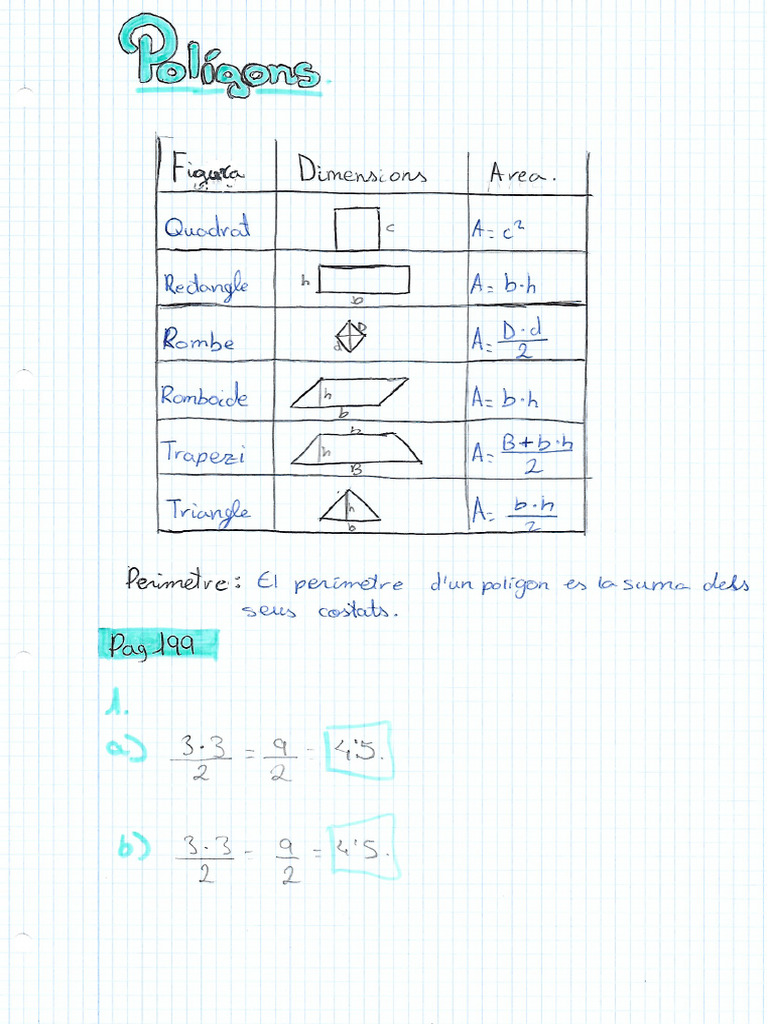 Polígons
Figura Dimensions Area.
Quadrat c A= c²
Rectangle h b A= b·h
Rombe D d A= D·d/2
Romboide h b A= b·h
Trapezi b h B A= B+b·h/2
Triangle h b A= b·h/2
Perimetre: El perímetre d'un polígon es la suma dels
seus costats.
Pag 199
1.
a) 3·3/2 = 9/2 = 4'5.
b) 3·3/2 = 9/2 = 4'5.